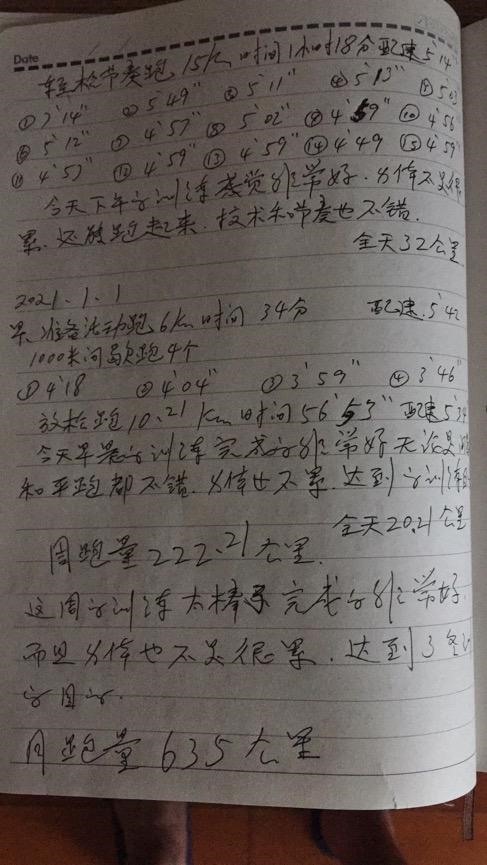 Date
轻松节奏跑 15km 时间1小时18分 配速5'14
①7'14" ②5'49" ③5'11" ④5'13" ⑤5'03
⑥5'12" ⑦4'57" ⑧5'02" ⑨4'59" ⑩4'56
⑪4'57" ⑫4'59" ⑬4'59" ⑭4'49 ⑮4'59
今天下午的训练感觉非常好.身体不是很
累.还能跑起来.技术和节奏也不错.
全天32公里
2021.1.1
早.准备活动跑6km时间 34分 配速.5'42
1000米间歇跑4个
①4'18 ②4'04" ③3'59" ④3'46"
放松跑10.21km时间56'53"配速5'34
今天早晨的训练完成的非常好无论是
和平跑都不错.身体也不累.达到的训练
全天20.21公里
周跑量222.21公里.
这周的训练太棒了完成的非常好.
而且身体也不是很累.达到了
的目的.
月跑量635公里